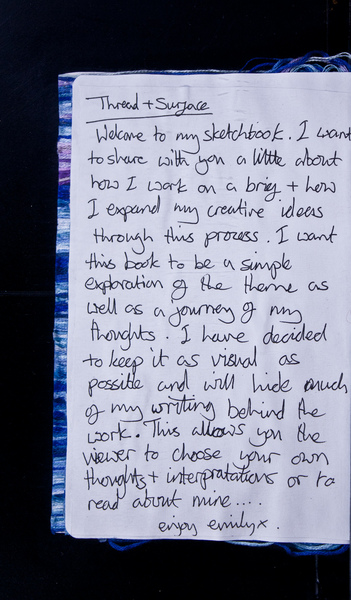 Thread + Surface
Welcome to my sketchbook. I want
to share with you a little about
how I work on a brief + how
I expand my creative ideas
through this process. I want
this book to be a simple
exploration of the theme as
well as a journey of my
thoughts. I have decided
to keep it as visual as
possible and will hide much
of my writing behind the
work. This allows you the
viewer to choose your own
thoughts + interpretations or to
read about mine....
enjoy emily x.